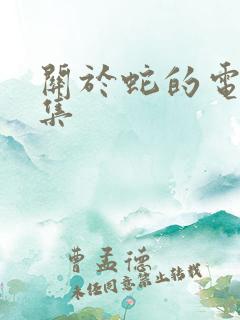 關於蛇的電
集
曹孟德
未經同意禁止轉載